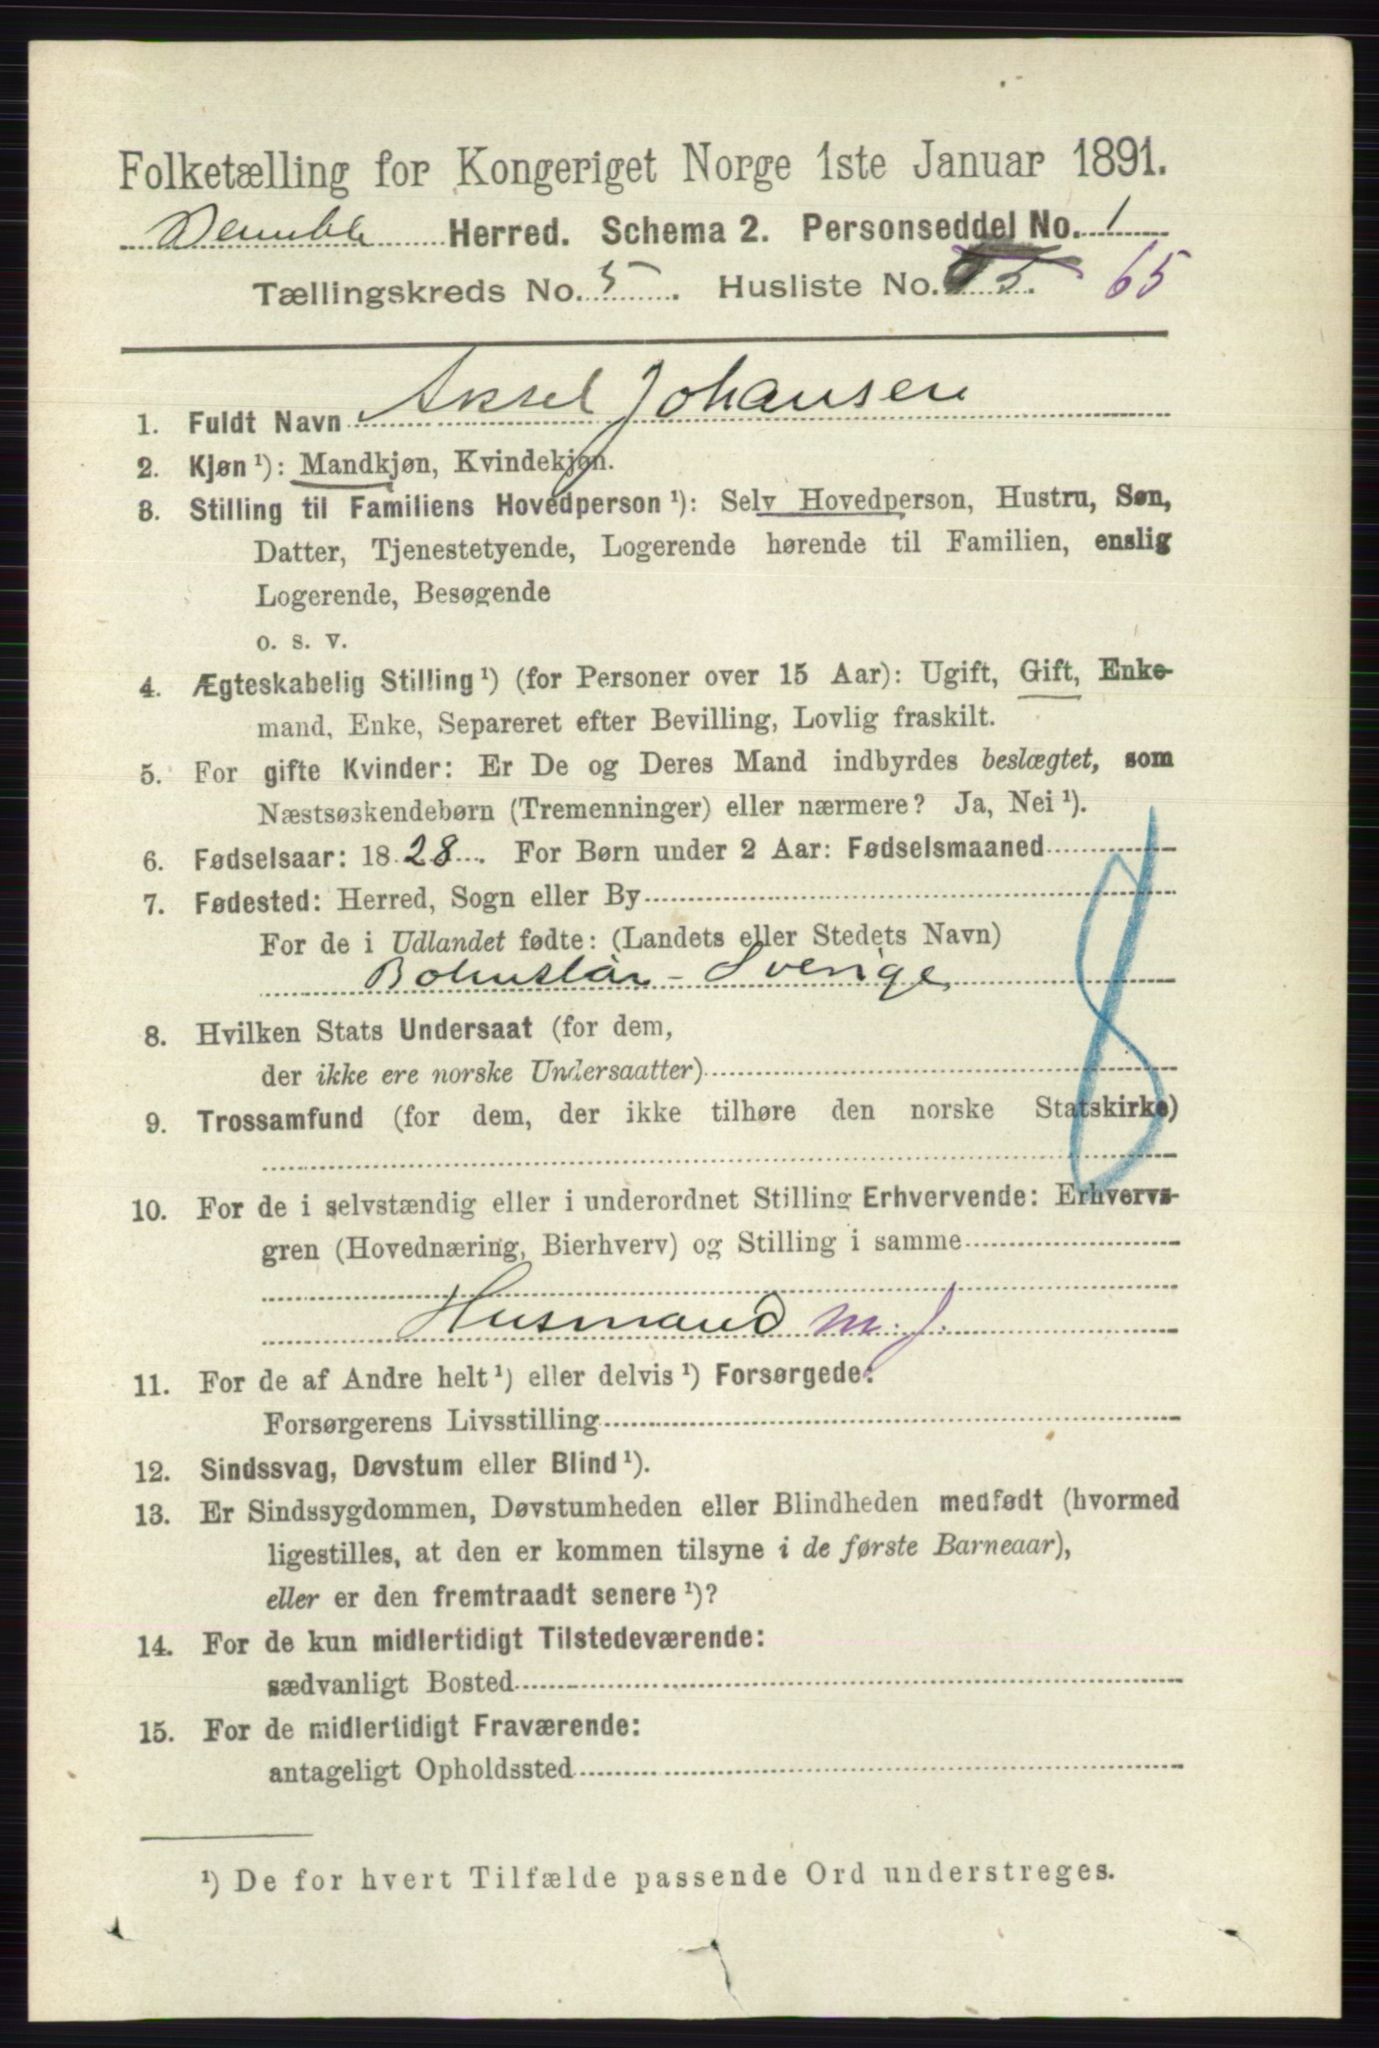 Folketælling for Kongeriget Norge 1ste Januar 1891.
Bamble Herred. Schema 2. Personseddel No. 1
Tællingskreds No. 5. Husliste No. 65
1. Fuldt Navn Aksel Johansen
2. Kjøn¹): Mandkjøn, Kvindekjøn.
3. Stilling til Familiens Hovedperson¹): Selv Hovedperson, Hustru, Søn,
Datter, Tjenestetyende, Logerende hørende til Familien, enslig
Logerende, Besøgende
o. s. v.
4. Ægteskabelig Stilling¹) (for Personer over 15 Aar): Ugift, Gift, Enke-
mand, Enke, Separeret efter Bevilling, Lovlig fraskilt.
5. For gifte Kvinder: Er De og Deres Mand indbyrdes beslægtet, som
Næstsøskendebørn (Tremenninger) eller nærmere? Ja, Nei¹).
6. Fødselsaar: 1828. For Børn under 2 Aar: Fødselsmaaned
7. Fødested: Herred, Sogn eller By
For de i Udlandet fødte: (Landets eller Stedets Navn)
Bohuslän - Sverige
8. Hvilken Stats Undersaat (for dem,
der ikke ere norske Undersaatter)
9. Trossamfund (for dem, der ikke tilhøre den norske Statskirke)
10. For de i selvstændig eller i underordnet Stilling Erhvervende: Erhvervs-
gren (Hovednæring, Bierhverv) og Stilling i samme
Husmand m. J.
11. For de af Andre helt¹) eller delvis¹) Forsørgede:
Forsørgerens Livsstilling
12. Sindssvag, Døvstum eller Blind¹).
13. Er Sindssygdommen, Døvstumheden eller Blindheden medfødt (hvormed
ligestilles, at den er kommen tilsyne i de første Barneaar),
eller er den fremtraadt senere¹)?
14. For de kun midlertidigt Tilstedeværende:
sædvanligt Bosted
15. For de midlertidigt Fraværende:
antageligt Opholdssted
¹) De for hvert Tilfælde passende Ord understreges.